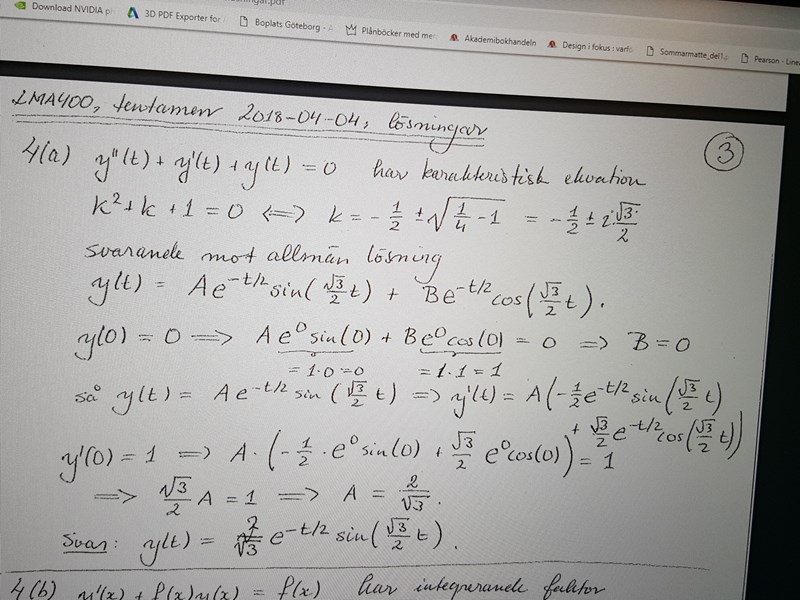 Download NVIDIA
3D PDF Exporter for
Boplats Göteborg -
Plånböcker med me
Akademibokhandeln
Design i fokus : varf
Sommarmatte_del1
Pearson - Linea
LMA400, tentamen 2018-04-04, lösningar
3
4(a) y''(t) + y'(t) + y(t) = 0 har karakteristisk ekvation
k² + k + 1 = 0 <=> k = -1/2 ± √(1/4 - 1) = -1/2 ± i·√3/2
svarande mot allmän lösning
y(t) = Ae^(-t/2) sin(√3/2 t) + Be^(-t/2) cos(√3/2 t).
y(0) = 0 => Ae⁰ sin(0) + Be⁰ cos(0) = 0 => B = 0
= 1·0 = 0 = 1·1 = 1
så y(t) = Ae^(-t/2) sin(√3/2 t) => y'(t) = A(-1/2 e^(-t/2) sin(√3/2 t)
+ √3/2 e^(-t/2) cos(√3/2 t))
y'(0) = 1 => A·(-1/2·e⁰ sin(0) + √3/2 e⁰ cos(0)) = 1
=> √3/2 A = 1 => A = 2/√3.
Svar: y(t) = 2/√3 e^(-t/2) sin(√3/2 t).
4(b) y'(x) + f(x)y(x) = f(x) har integrerande faktor